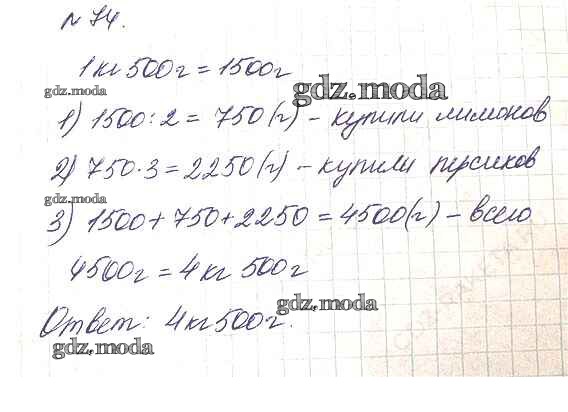 № 74.
1 кг 500 г = 1500 г
gdz.moda
gdz.moda
1) 1500 : 2 = 750 (г) – купили лимонов
2) 750 · 3 = 2250 (г) – купили персиков
gdz.moda
3) 1500 + 750 + 2250 = 4500 (г) – всего
4500 г = 4 кг 500 г
gdz.moda
Ответ: 4 кг 500 г.
gdz.moda